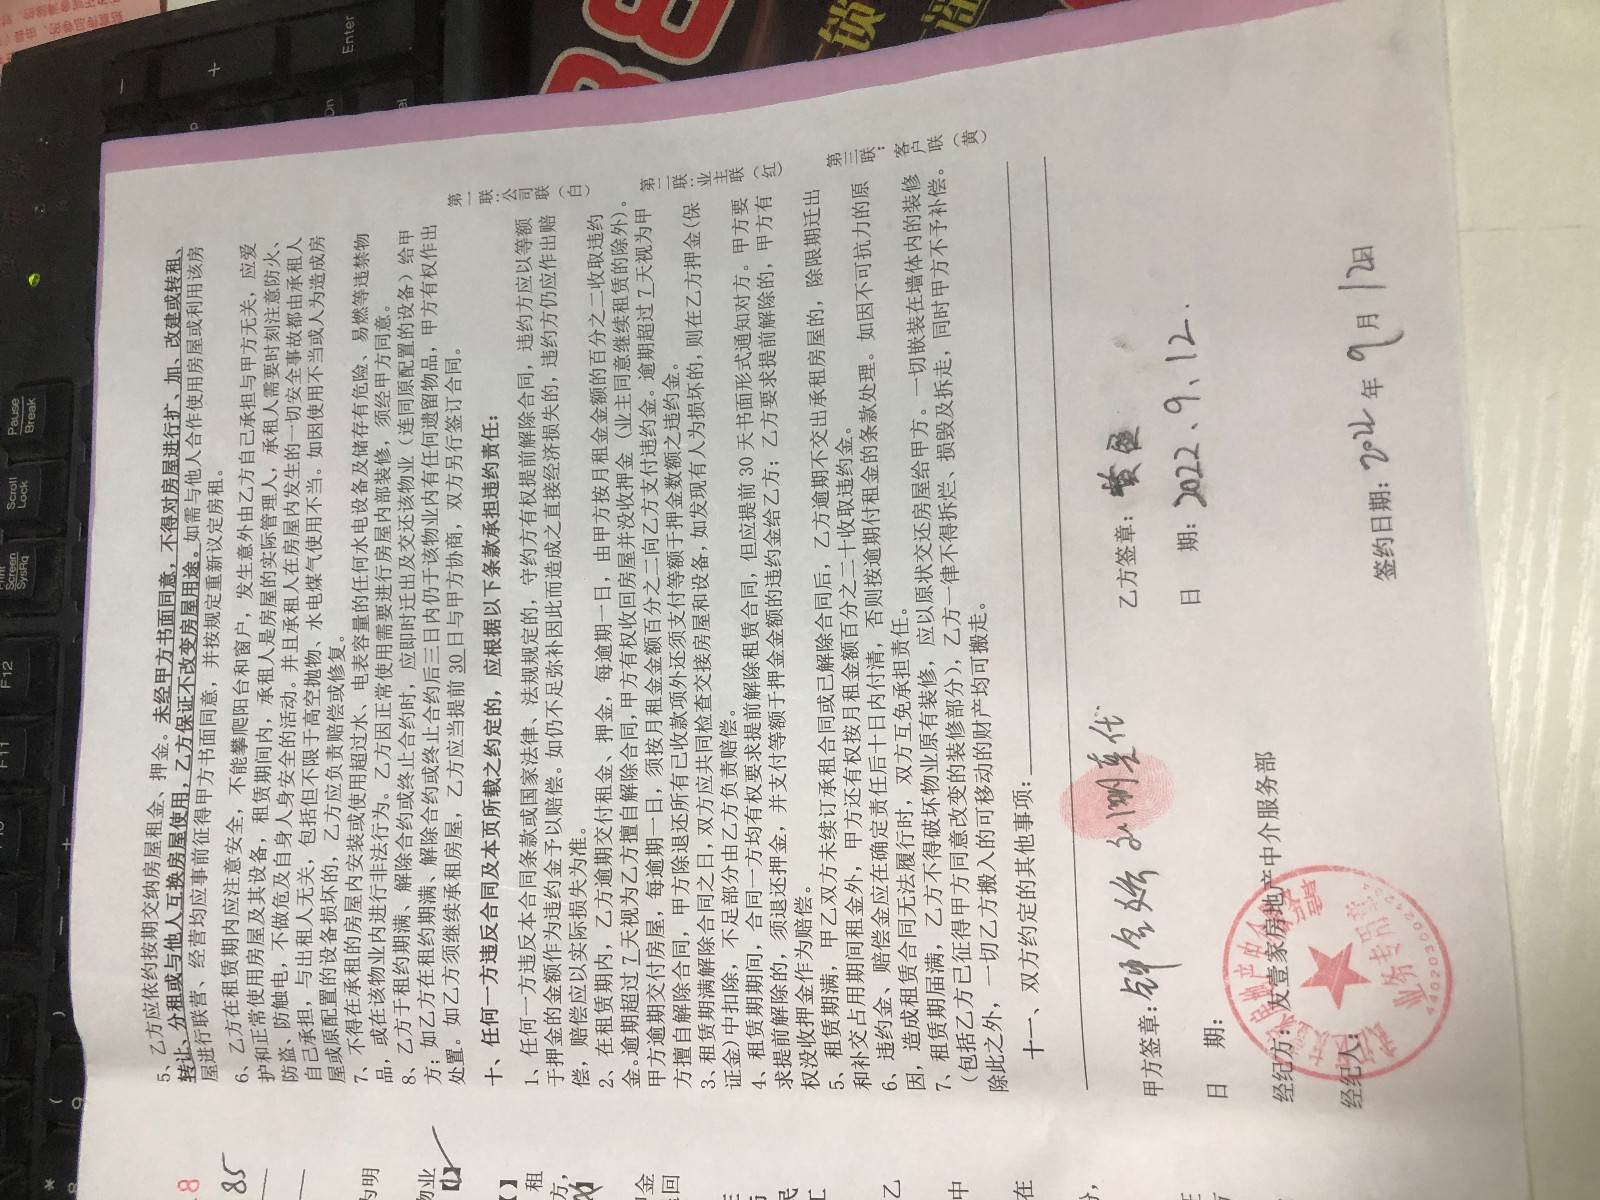 5、乙方应依约按期交纳房屋租金、押金。未经甲方书面同意，不得对房屋进行扩、加、改建或转租、
转让、分租或与他人互换房屋使用，乙方保证不改变房屋用途。如需与他人合作使用房屋或利用该房
屋进行联营、经营均应事前征得甲方书面同意，并按规定重新议定房租。
6、乙方在租赁期内应注意安全，不能攀爬阳台和窗户，发生意外由乙方自己承担与甲方无关，应爱
护和正常使用房屋及其设备，租赁期间内，承租人是房屋的实际管理人，承租人需要时刻注意防火、
防盗、防触电，不做危及自身人身安全的活动。并且承租人在房屋内发生的一切安全事故都由承租人
自己承担，与出租人无关，包括但不限于高空抛物、水电煤气使用不当。如因使用不当或人为造成房
屋或原配置的设备损坏的，乙方应负责赔偿或修复。
7、不得在承租的房屋内安装或使用超过水、电表容量的任何水电设备及储存有危险、易燃等违禁物
品，或在该物业内进行非法行为。乙方因正常使用需要进行房屋内部装修，须经甲方同意。
8、乙方于租约期满、解除合约或终止合约时，应即时迁出及交还该物业（连同原配置的设备）给甲
方；如乙方在租约期满、解除合约或终止合约后三日内仍于该物业内有任何遗留物品，甲方有权作出
处置。如乙方须继续承租房屋，乙方应当提前30日与甲方协商，双方另行签订合同。
十、任何一方违反合同及本页所载之约定的，应根据以下条款承担违约责任：
1、任何一方违反本合同条款或国家法律、法规规定的，守约方有权提前解除合同，违约方应以等额
于押金的金额作为违约金予以赔偿。如仍不足弥补因此而造成之直接经济损失的，违约方仍应作出赔
偿，赔偿应以实际损失为准。
2、在租赁期内，乙方逾期交付租金、押金，每逾期一日，由甲方按月租金金额的百分之二收取违约
金。逾期超过7天视为乙方擅自解除合同，甲方有权收回房屋并没收押金（业主同意继续租赁的除外）。
甲方逾期交付房屋，每逾期一日，须按月租金金额百分之二向乙方支付违约金。逾期超过7天视为甲
方擅自解除合同，甲方除退还所有已收款项外还须支付等额于押金数额之违约金。
3、租赁期满解除合同之日，双方应共同检查交接房屋和设备，如发现有人为损坏的，则在乙方押金(保
证金)中扣除，不足部分由乙方负责赔偿。
4、租赁期期间，合同一方均有权要求提前解除租赁合同，但应提前30天书面形式通知对方。甲方要
求提前解除的，须退还押金，并支付等额于押金金额的违约金给乙方；乙方要求提前解除的，甲方有
权没收押金作为赔偿。
5、租赁期满，甲乙双方未续订承租合同或已解除合同后，乙方逾期不交出承租房屋的，除限期迁出
和补交占用期间租金外，甲方还有权按月租金额百分之二十收取违约金。
6、违约金、赔偿金应在确定责任后十日内付清，否则按逾期付租金的条款处理。如因不可抗力的原
因，造成租赁合同无法履行时，双方互免承担责任。
7、租赁期届满，乙方不得破坏物业原有装修，应以原状交还房屋给甲方。一切嵌装在墙体内的装修
（包括乙方已征得甲方同意改变的装修部分），乙方一律不得拆烂、损毁及拆走，同时甲方不予补偿。
除此之外，一切乙方搬入的可移动的财产均可搬走。
十一、双方约定的其他事项：
甲方签章：
乙方签章：
日 期：
日 期：2022.9.12.
经纪方：友壹家房地产中介服务部
经纪人：
业务专用章
签约日期：2022年9月12日
第一联：公司联（白）
第二联：业主联（红）
第三联：客户联（黄）
85
Enter
Pause
Break
Scroll
Lock
Screen
SysRq
F12
F11